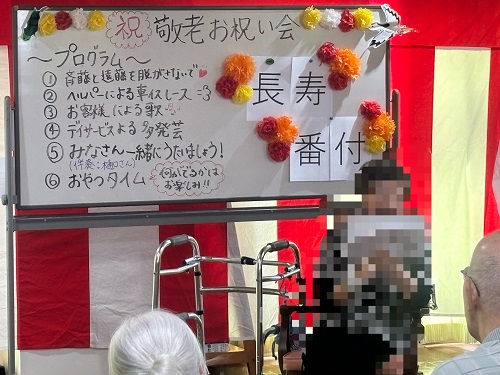 祝 敬老お祝い会
～プログラム～
① 斉藤と遠藤を脱がさないで♥
② ヘルパーによる車イスレース =3
③ お客様による歌♪
④ デイサービスよる多発芸
⑤ みなさん一緒にうたいましょう!
(伴奏:樋口さん)
⑥ おやつタイム
何がでるかは
お楽しみ!!
長寿
番付